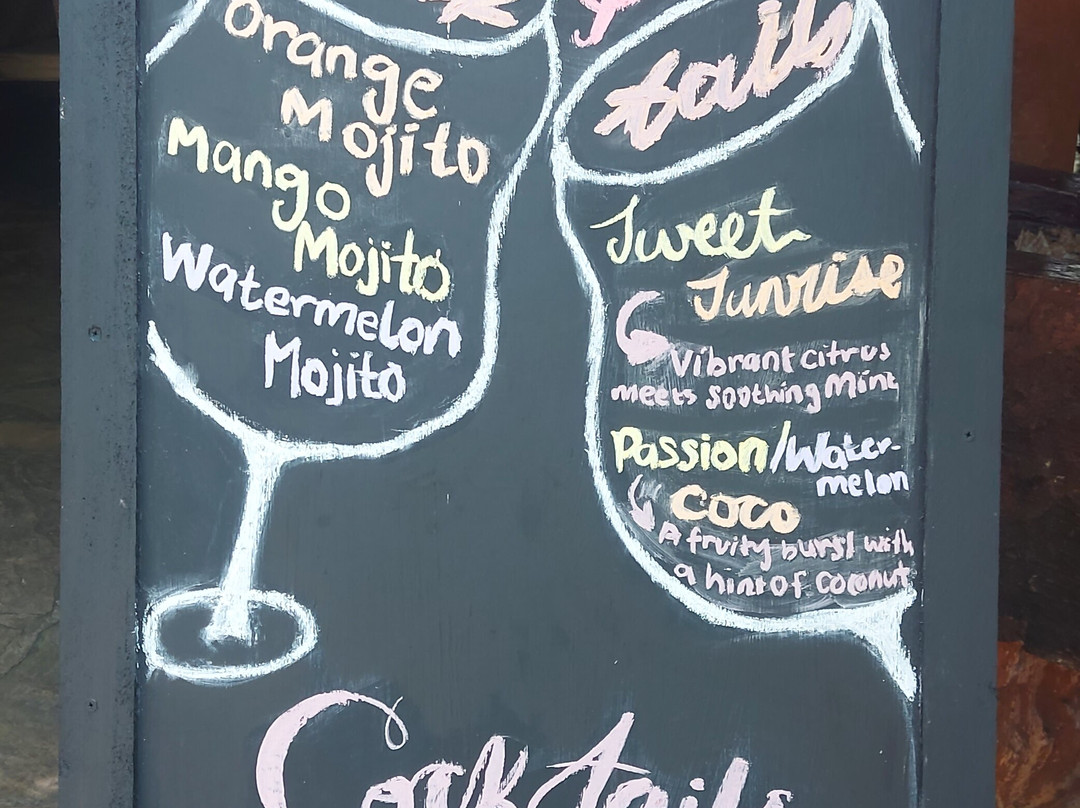 Orange
Mojito
Mango
Mojito
Watermelon
Mojito
tails
Sweet
Sunrise
Vibrant citrus
meets soothing Mint
Passion/Water-
melon
coco
A fruity burst with
a hint of coconut
Cocktails